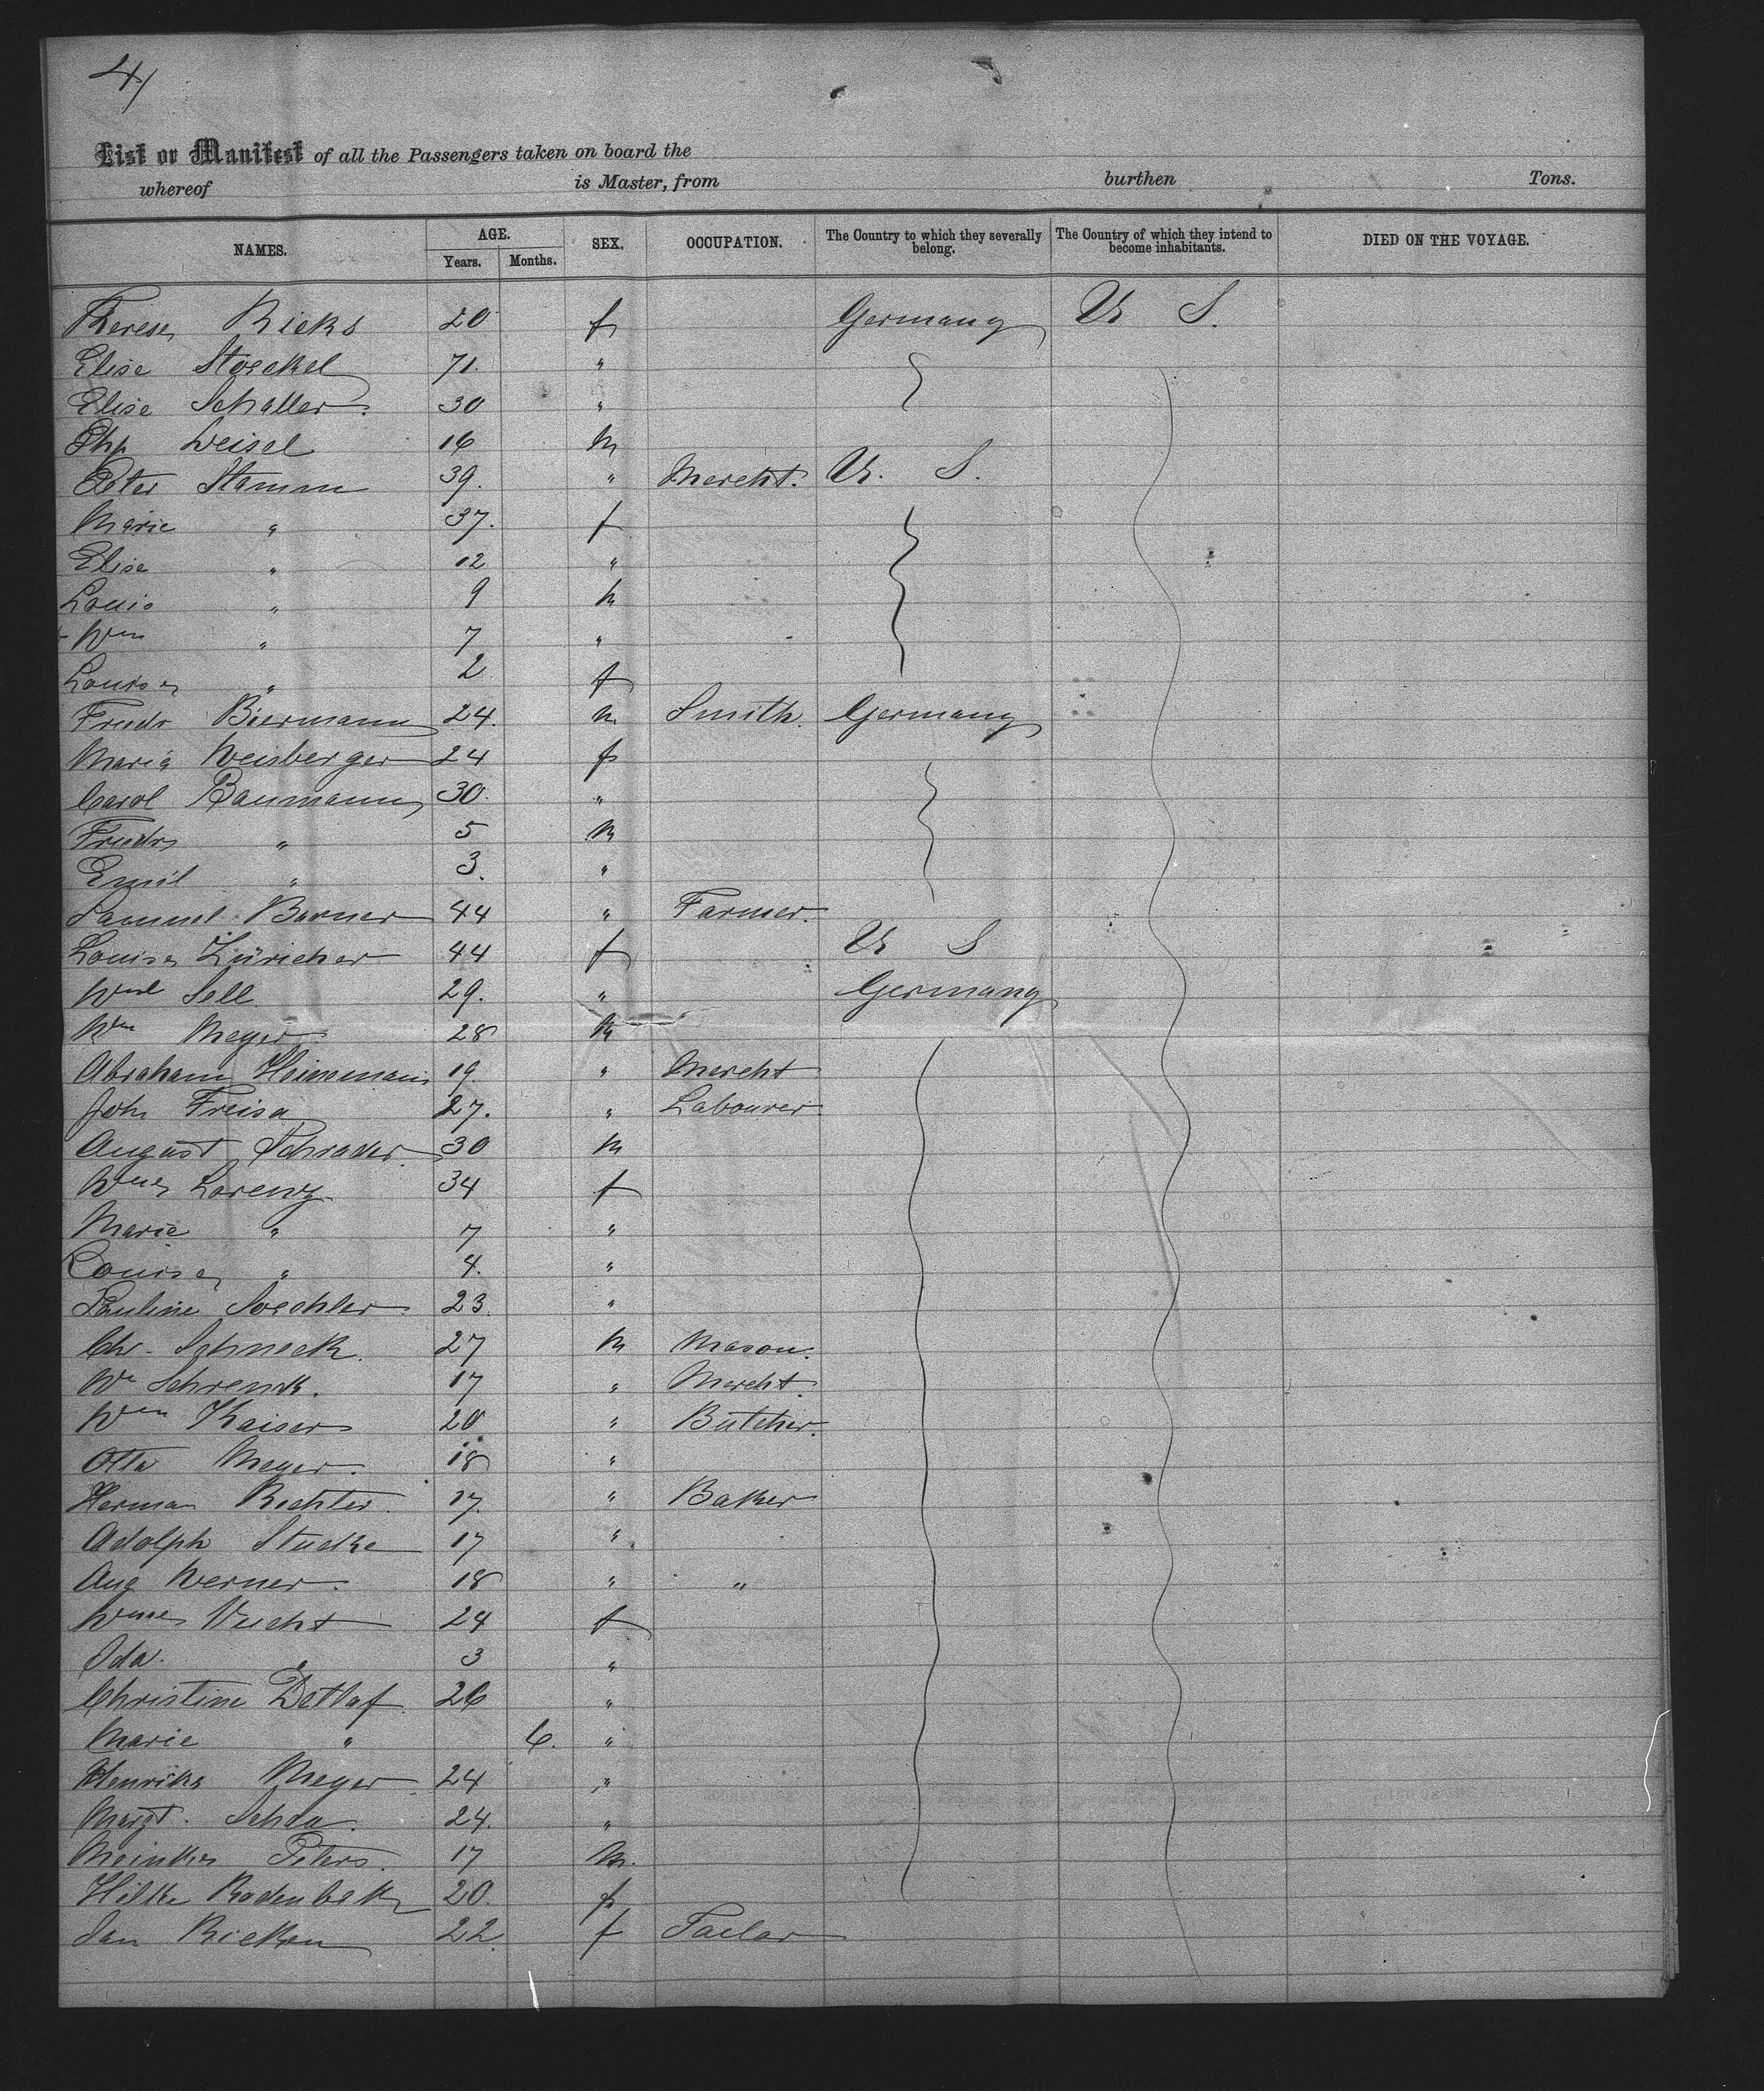 4/
List or Manifest of all the Passengers taken on board the
whereof is Master, from burthen Tons.
NAMES. AGE. Years. Months. SEX. OCCUPATION. The Country to which they severally belong. The Country of which they intend to become inhabitants. DIED ON THE VOYAGE.
Therese Ricks 20 f Germany U S.
Elise Stoeckel 71. "
Elise Schaller. 30 "
Php Weisel 16 m
Peter Stamm 39. " Mercht. U. S.
Marie " 37. f
Elise " 12 "
Louis " 9 m
Wm " 7 "
Louise " 2 f
Friedr Biermann 24. m Smith. Germany
Maria Weisberger 24 f
Carol Baumann 30. "
Friedr " 5 m
Emil " 3. "
Samuel Borner 44 " Farmer.
Louise Züricher 44 f U S
Sell 29. " Germany
Wm Meyer 28 m
Abraham Heinemann 19. " Mercht
Joh Freisa 27. " Labourer
August Schrader 30 m
Lorenz 34 f
Marie " 7 "
Louise " 4. "
Pauline 23. "
Chr. Schneck. 27 m Mason.
Wm Schrenk. 17 " Mercht.
Wm Kaiser 20 " Butcher.
Otto Meyer. 18 "
Herman Richter. 17. " Baker
Adolph Stucke 17 "
Aug Werner. 18 " "
Wme Veicht 24 f
Ida. " 3 "
Christine Detlaf. 26 "
Marie " 6. "
Henrike Meyer 24 "
Margt. 24. "
Meinke Peters. 17 m.
Hilke Rodenbek 20. f
Jan Ricken 22 f Taelor